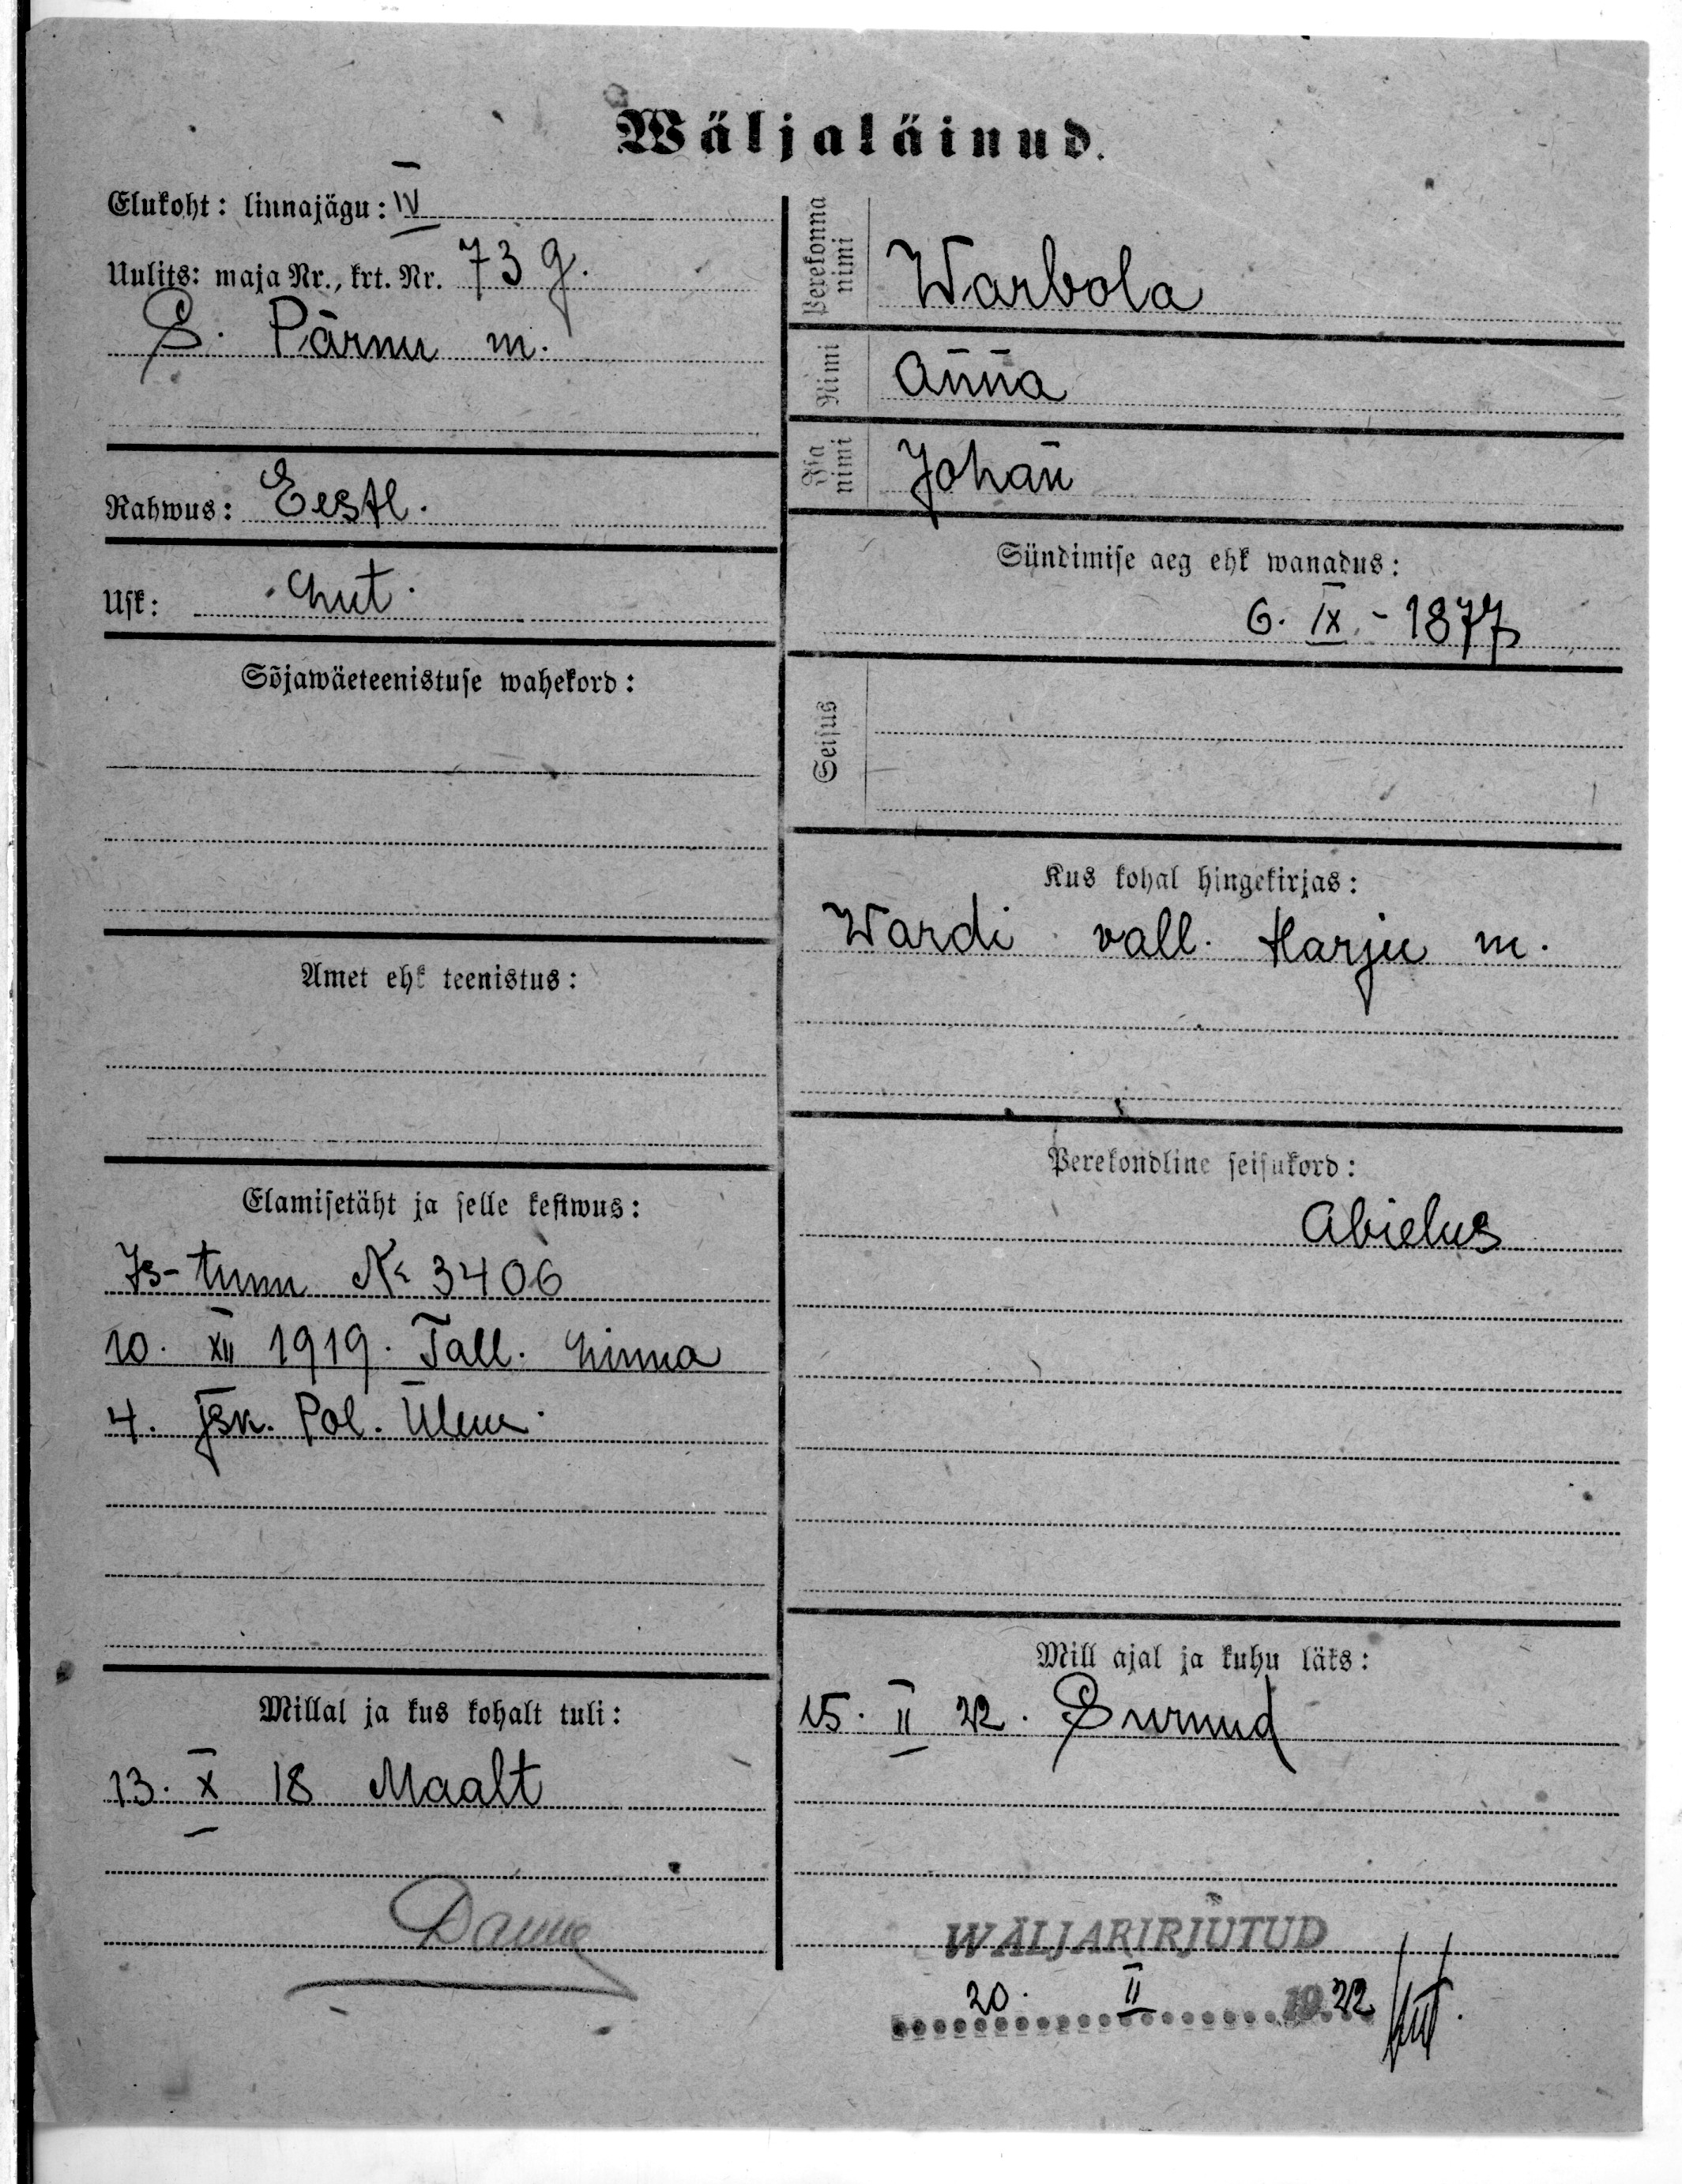 Wäljaläinud.
Elukoht: linnajägu: IV
Uulits: maja Nr., krt. Nr. 73 g.
S. Pärnu m.
Rahwus: Eestl.
Usk: Lut.
Sõjawäeteenistuse wahekord:
Amet ehk teenistus:
Elamisetäht ja selle kestwus:
Is-tunn № 3406
10. XII 1919. Tall. Linna
4. Jsk. Pol. Ülem.
Millal ja kus kohalt tuli:
13. X 18 Maalt
Perekonna nimi Warbola
Nimi Anna
Isa nimi Johan̄
Sündimise aeg ehk wanadus:
6. IX - 1877
Seisus
Kus kohal hingekirjas:
Wardi vall. Harju m.
Perekondline seisukord:
Abielus
Mill ajal ja kuhu läks:
15. II 22. Surnud
WÄLJAKIRJUTUD
20. II 1922